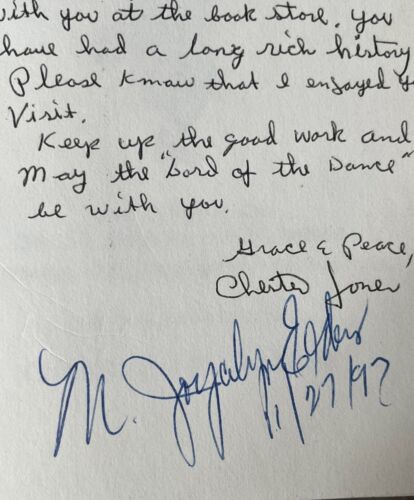 with you at the book store. You
have had a long rich history
Please know that I enjoyed
Visit.
Keep up the good work and
May the "Lord of the Dance"
be with you.
Grace & Peace,
Chester Jones
M. Joycelyn Elders
11/27/97